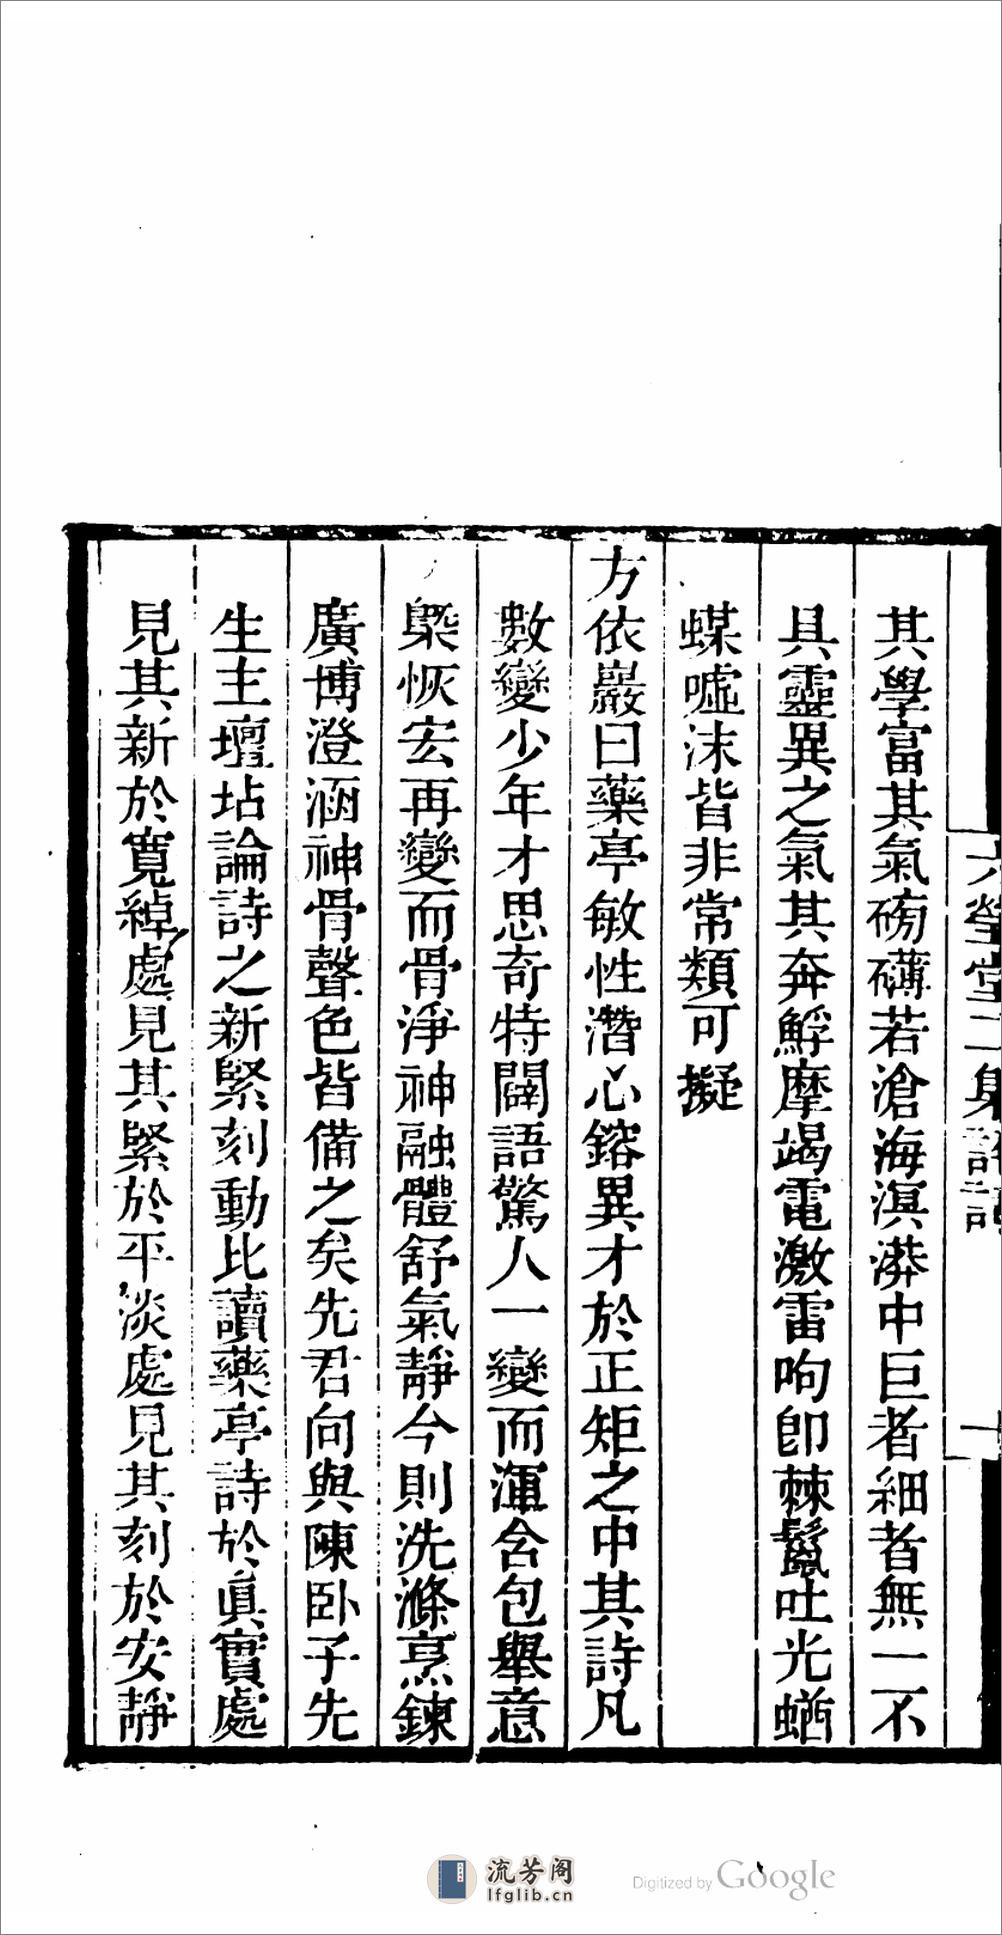 六瑩堂二集評詞
一
其學富其氣磅礴若滄海溟漭中巨者細者無一不
具靈異之氣其奔鯙摩竭電激雷呴卽棘鬣吐光蝤
蝶噓沫皆非常類可擬
方依巖曰藥亭敏性潛心鎔異才於正矩之中其詩凡
數變少年才思奇特闢語驚人一變而渾含包舉意
槩恢宏再變而骨淨神融體舒氣靜今則洗滌烹鍊
廣博澄涵神骨聲色皆備之矣先君向與陳卧子先
生主壇坫論詩之新緊刻動比讀藥亭詩於眞實處
見其新於寬綽處見其緊於平淡處見其刻於安靜
流芳阁
lfglib.cn
Digitized by Google